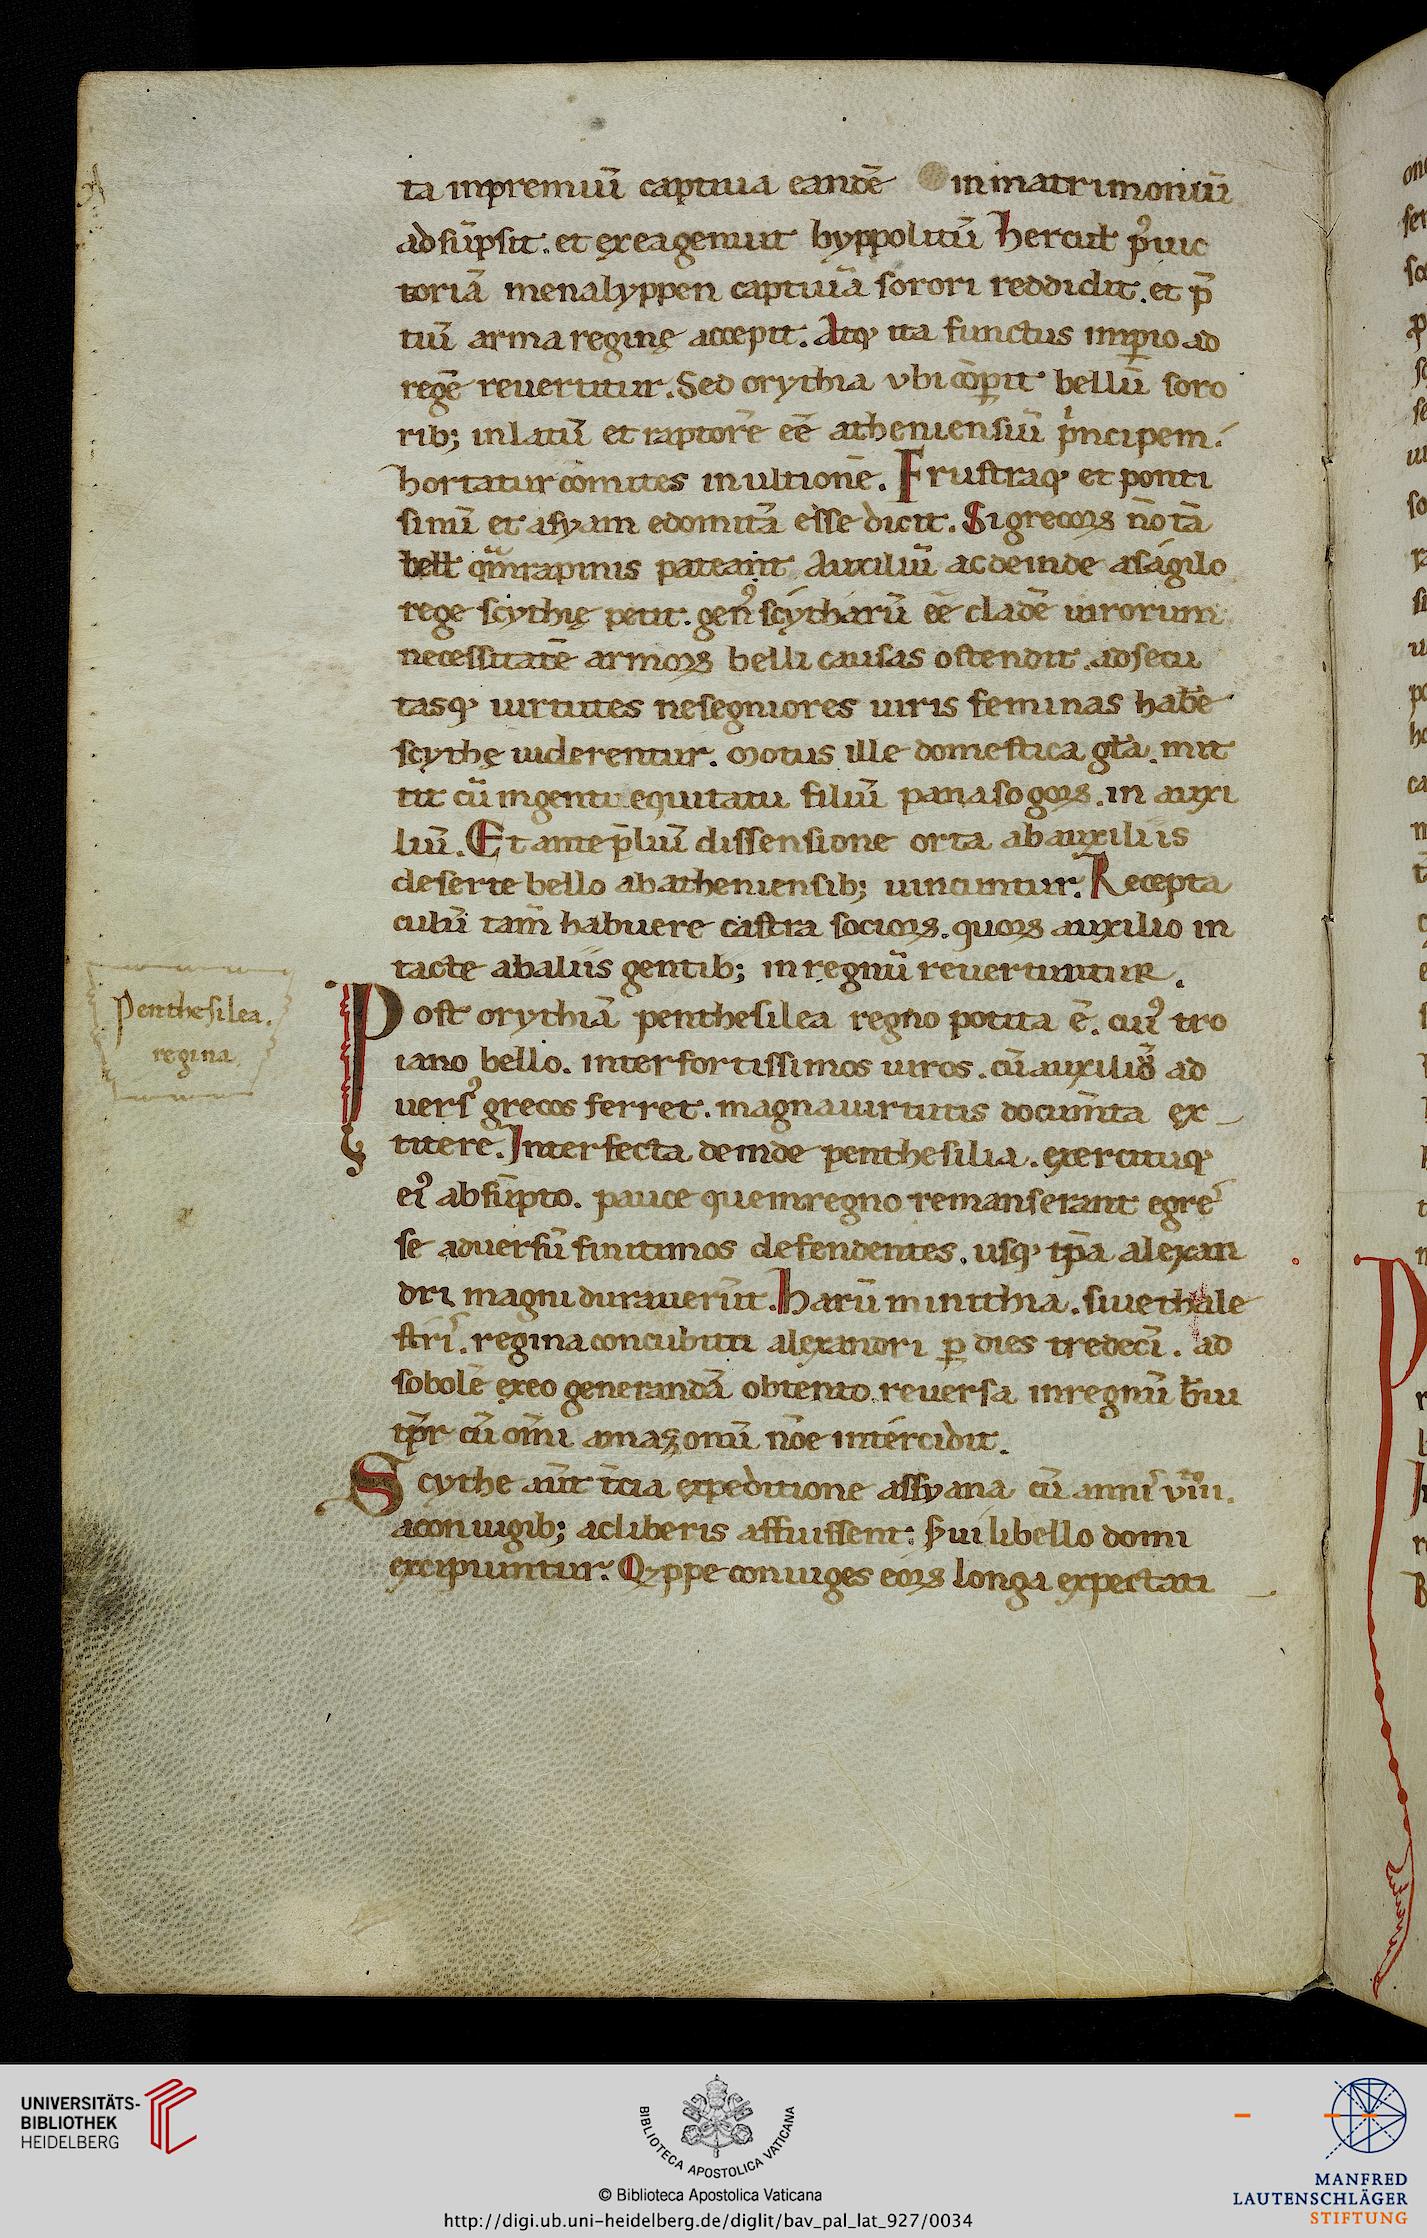 ta inpremiũ captiua eandẽ in matrimoniũ
adsũpsit. et exeagenuit hyppolitũ hercuł p᾽uic
toriã menalyppen captiuã sorori reddidit. et p̃
tiũ arma reginę accepit. Atq; ita functus imꝑio ad
regẽ reuertitur. Sed orythia vbi cõꝑit bellũ soro
rib; inlatũ et raptorẽ eẽ atheniensiũ p̍ncipem.
hortatur comites in ultionẽ. Frustraq; et ponti
sinũ et asyam edomitã esse dicit. Si grecoꝝ nõ tã
bełł quã rapinis pateant Auxiliũ ac deinde asagilo
rege scythię petit. gen᾽ scytharũ eẽ cladẽ uirorum
necessitatẽ armoꝝ belli causas ostendit. adsecu
tasq; uirtutes nesegniores uiris feminas habẽ
scythę uiderentur. Motus ille domestica gła. mit
tit cũ ingenti equitatu filiũ panasogoꝝ. in auxi
liũ. Et ante p̃liũ dissensione orta ab auxiliis
deserte bello ab atheniensib; uincuntur. Recepta
culũ tam̃ habuere castra socioꝝ. quoꝝ auxilio in
tacte ab aliis gentib; in regnũ reuertuntur.
Penthesilea.
regina
Post orythiã penthesilea regno potita ẽ. cui᾽ tro
iano bello. inter fortissimos uiros. cũ auxiliũ ad
uers᾽ grecos ferret. magna uirtutis documẽta ex
titere. Interfecta deinde penthesilia. exercituq;
ei᾽ absũpto. pauce que inregno remanserant egre
se aduersũ finitimos defendentes. usq; tp̃a alexan
dri magni durauerũt. harũ minithia. siue thale
stris. regina concubitu alexandri ꝑ dies tredecĩ. ad
sobolẽ exeo generandã obtento. reuersa inregnũ b̃ui
tp̃r cũ om̃i amazonũ nõe intercidit.
Scythe aũt t̃cia expeditione assyana cũ annis viii.
a coniugib; acliberis affuissent: s̃uili bello domi
excipiuntur. Quippe coniuges eoꝝ longa expectati
UNIVERSITÄTS-
BIBLIOTHEK
HEIDELBERG
BIBLIOTECA APOSTOLICA VATICANA
© Biblioteca Apostolica Vaticana
http://digi.ub.uni-heidelberg.de/diglit/bav_pal_lat_927/0034
MANFRED
LAUTENSCHLÄGER
STIFTUNG